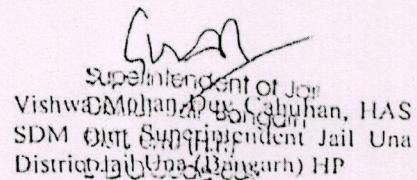 Superintendent of Jail
Vishwa Mohan Dev Cahuhan, HAS
SDM Cum Superintendent Jail Una
District Jail Una (Bangarh) HP